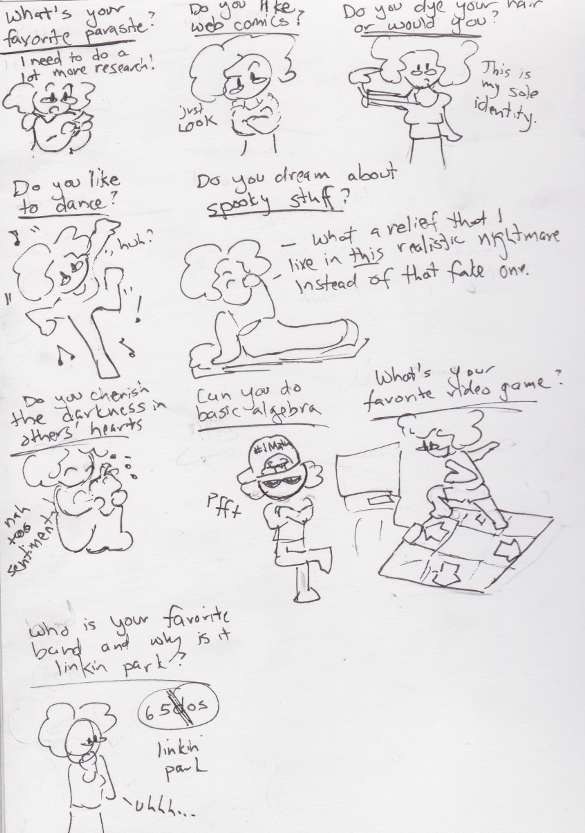 What's your
favorite parasite?
I need to do a
lot more research!
Do you like
web comics?
just
look
Do you dye your hair
or would you?
This is
my sole
identity.
Do you like
to dance?
huh?
Do you dream about
spooky stuff?
What a relief that I
live in this realistic nightmare
instead of that fake one.
Do you cherish
the darkness in
others' hearts
too
sentimental
Can you do
basic algebra
#1 Math
Pfft
What's your
favorite video game?
Who is your favorite
band and why is it
linkin park?
65dos
linkin
park
uhhh...